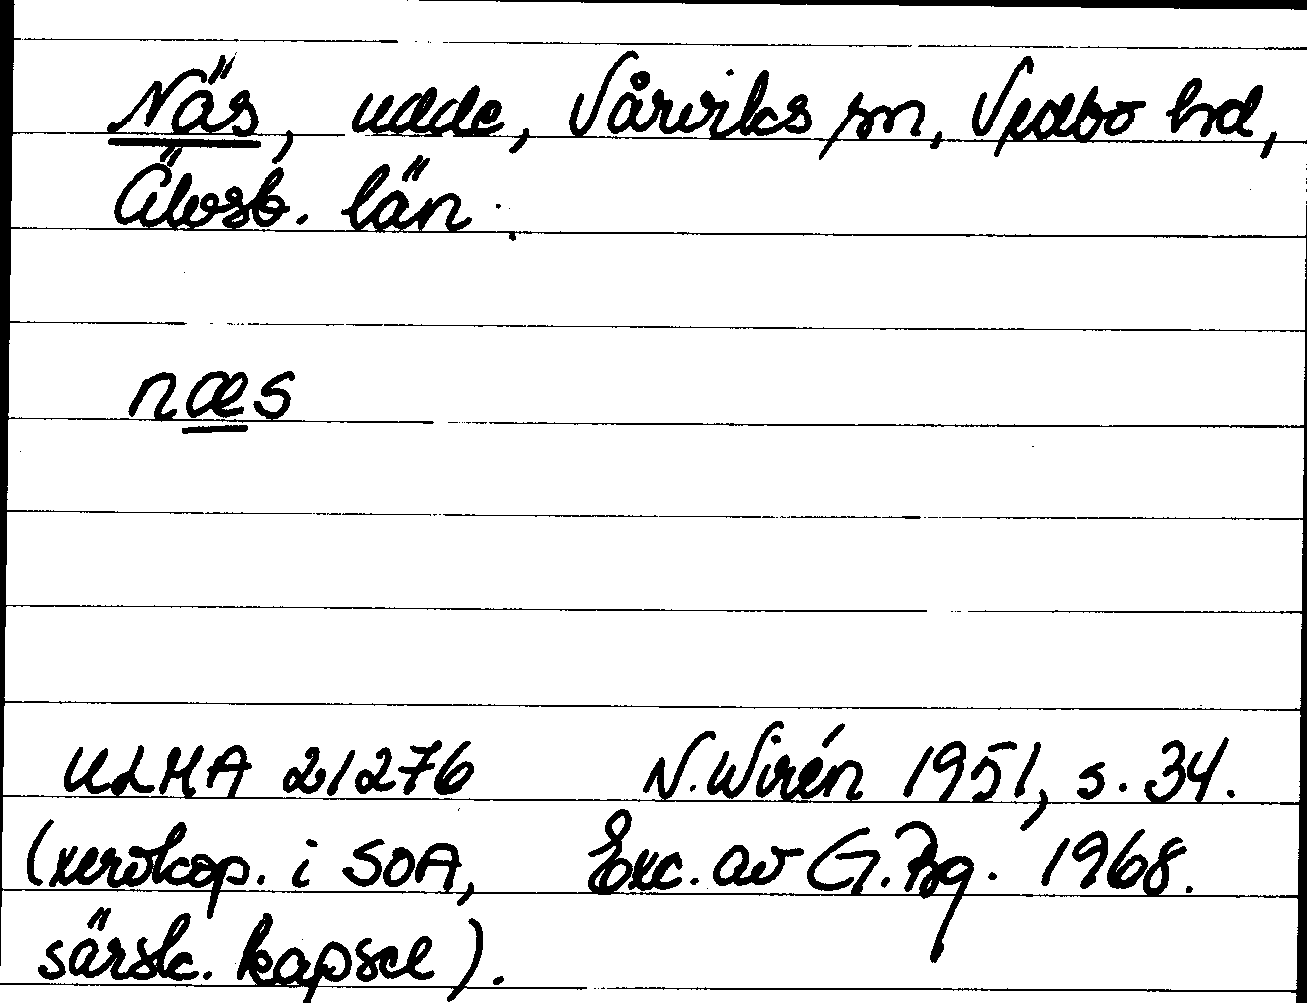 Näs, udde, Vårviks sn, Vedbo hd,
Älvsb. län.
næs
ULMA 21276 N. Wirén 1951, s. 34.
(xerokop. i SOA, Exc. av G. Bg. 1968.
särsk. kapsel).